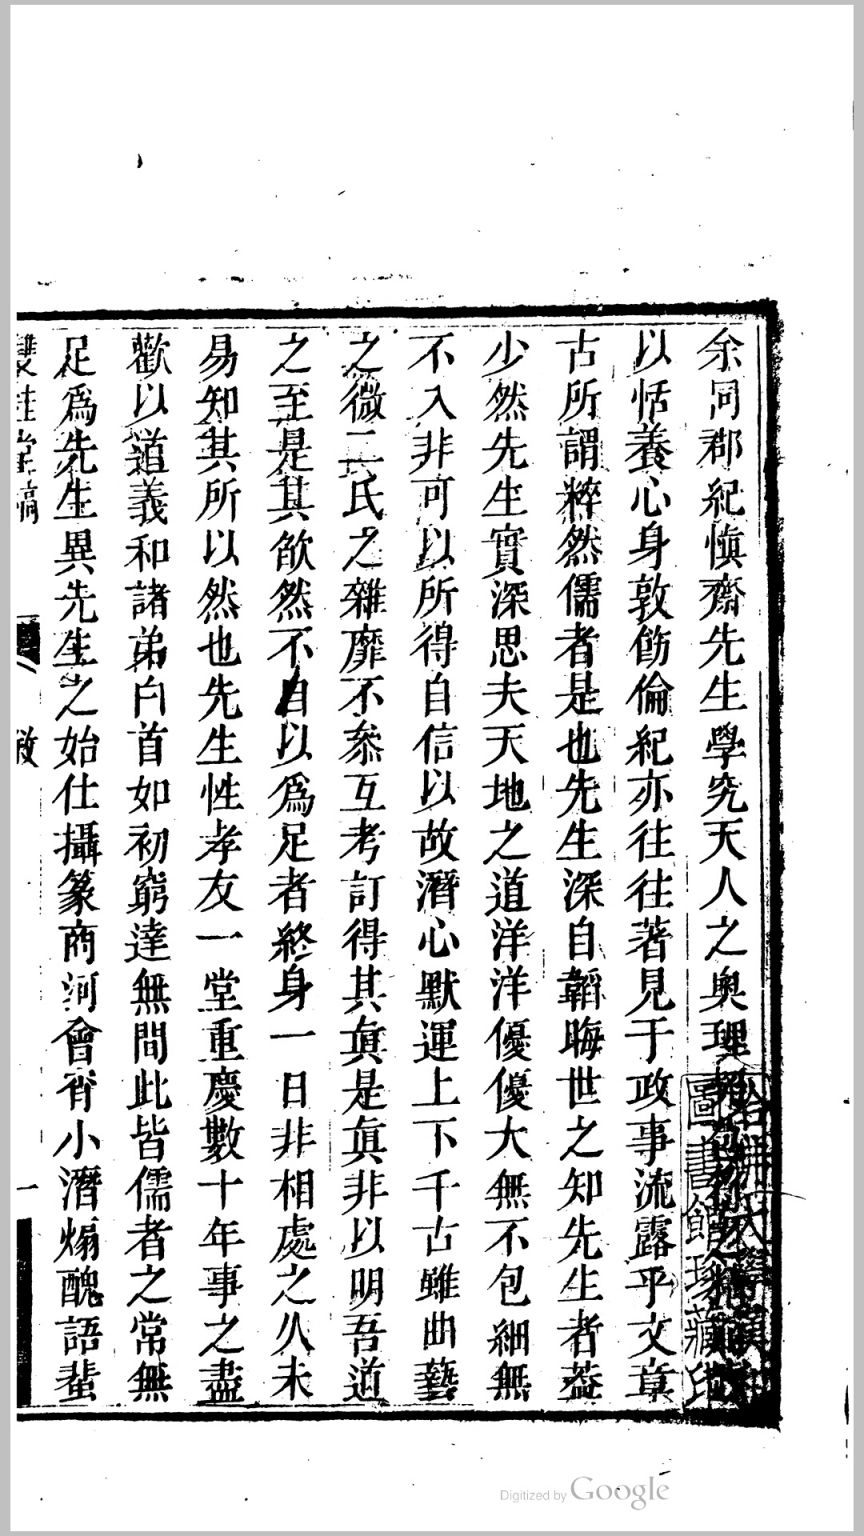 余同郡紀慎齋先生學究天人之奥理
以恬養心身敦飭倫紀亦往往著見于政事流露乎文章
古所謂粹然儒者是也先生深自韜晦世之知先生者葢
少然先生實深思夫天地之道洋洋優優大無不包細無
不入非可以所得自信以故潛心默運上下千古雖曲藝
之微二氏之雜靡不叅互考訂得其眞是眞非以明吾道
之至是其歉然不自以爲足者終身一日非相處之久未
易知其所以然也先生性孝友一堂重慶數十年事之盡
歡以道義和諸弟白首如初窮達無間此皆儒者之常無
足爲先生異先生之始仕攝篆商河會胥小潛煽醜語蜚
雙桂堂稿
敘
一
圖書館珍藏印
Digitized by Google